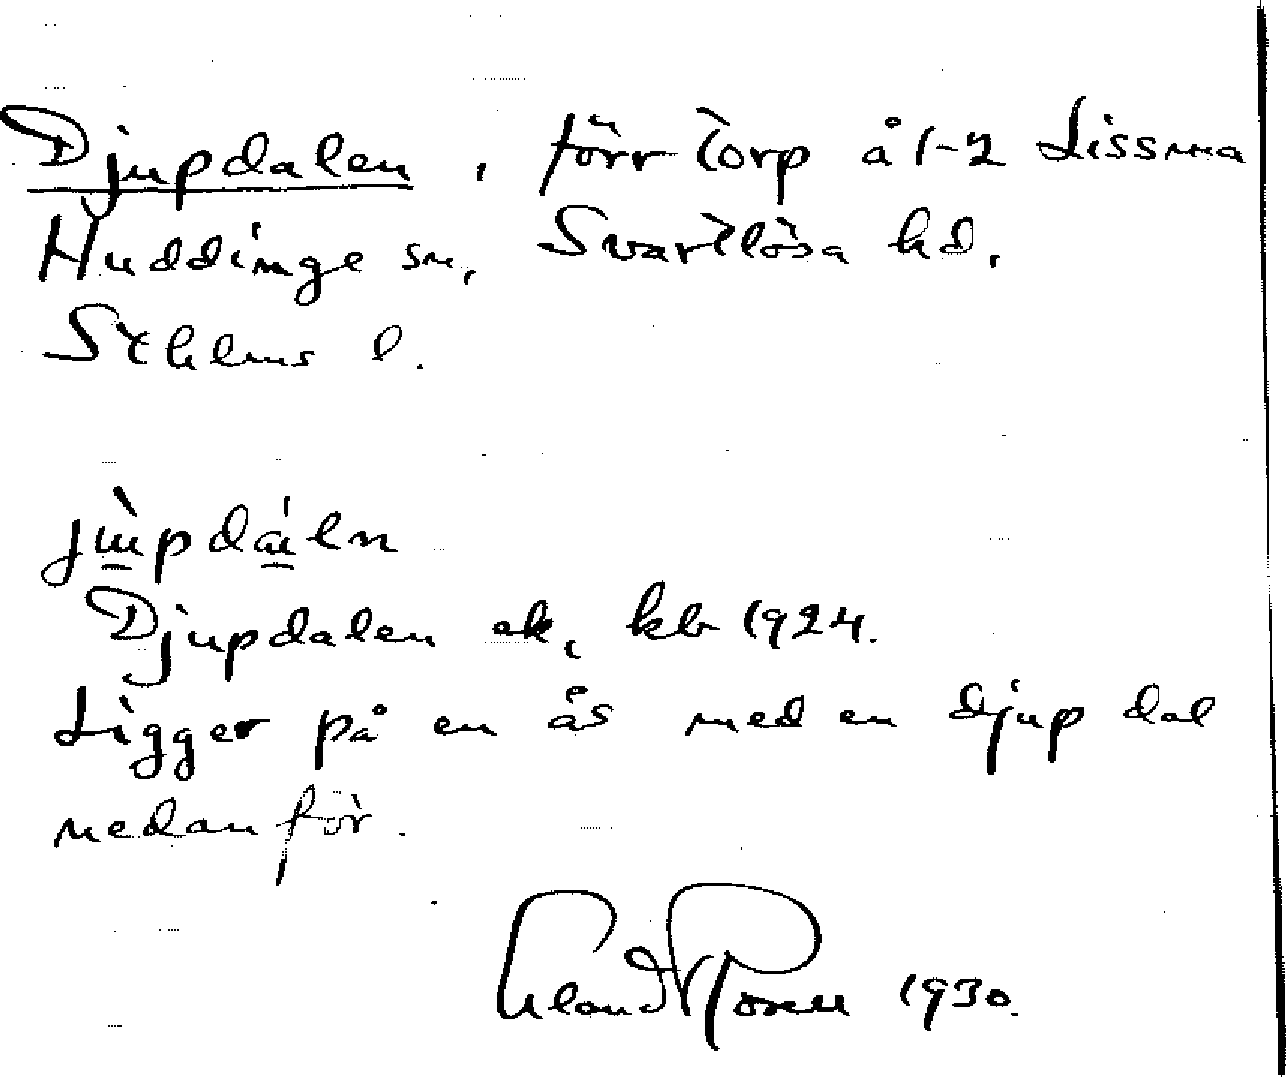 Djupdalen, förr torp å 1-2 Lissma
Huddinge sn, Svartlösa hd.
Sthlms l.
Djupdalen ek, kb 1924.
Ligger på en ås med en djup dal
nedanför.
1930.